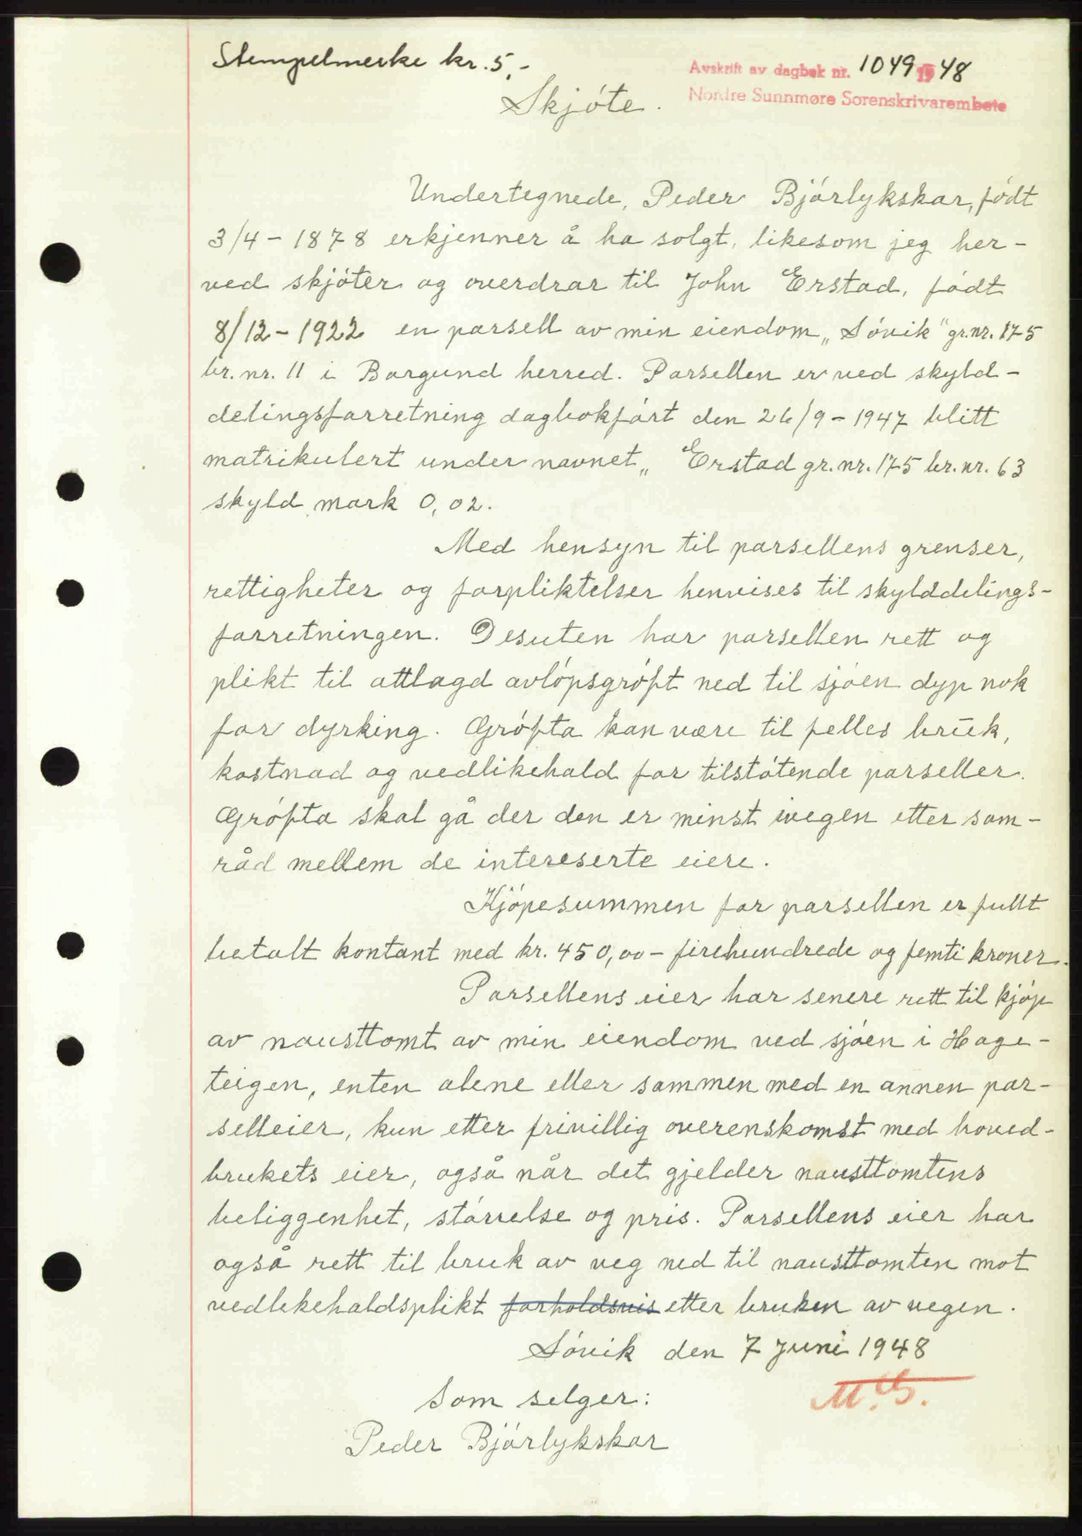 Stempelmerke kr. 5,-
Avskrift av dagbok nr. 1049 1948
Nordre Sunnmøre Sorenskrivarembete
Skjóte.
Undertegnede, Peder Bjórlykskar, fódt
3/4 - 1878 erkjenner å ha solgt, likesom jeg her-
ved skjóter og overdrar til John Erstad, fódt
8/12 - 1922 en parsell av min eiendom „Sóvik" gr.nr. 175
br. nr. 11 i Borgund herred. Parsellen er ved skyld-
delingsforretning dagbokfórt den 26/9 - 1947 blitt
matrikulert under navnet „Erstad gr. nr. 175 br. nr. 63
skyld mark 0,02.
Med hensyn til parsellens grenser,
rettigheter og forpliktelser henvises til skylddelings-
forretningen. Desuten har parsellen rett og
plikt til attlagd avlópsgróft ned til sjóen dyp nok
for dyrking. Grófta kan være til felles bruk,
kostnad og vedlikehald for tilstótende parseller.
Grófta skal gå der den er minst ivegen etter sam-
råd mellem de intereserte eiere.
Kjópesummen for parsellen er fullt
betalt kontant med kr. 450,00 - firehundrede og femti kroner.
Parsellens eier har senere rett til kjóp
av nausttomt av min eiendom ved sjóen i Hage-
teigen, enten alene eller sammen med en annen par-
selleier, kun etter frivillig overenskomst med hoved-
brukets eier, også når det gjelder nausttomtens
beliggenhet, stórrelse og pris. Parsellens eier har
også rett til bruk av veg ned til nausttomten mot
vedlikehaldsplikt forholdsvis etter bruken av vegen.
Sóvik den 7 Juni 1948
Som selger:
Peder Bjórlykskar